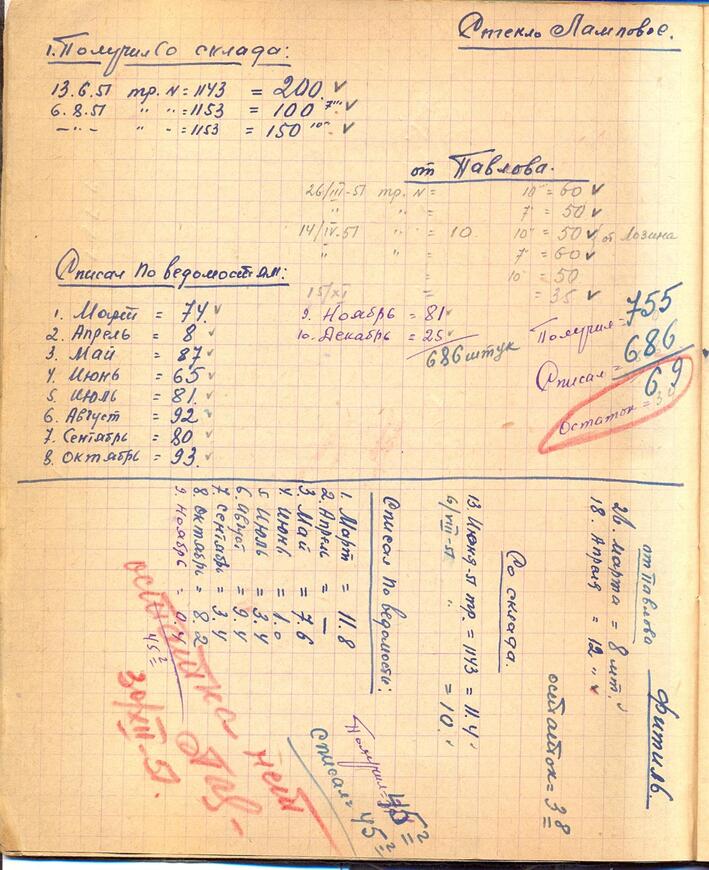 Стекло Ламповое.
1. Получил Со склада:
13.6.51 тр. N = 1143 = 200. ✓
6.8.51 " " = 1153 = 100 7''' ✓
—"— " - = 1153 = 150 10''' ✓
от Павлова.
26/III-51 тр. N = 10''' = 60 ✓
" " 7''' = 50 ✓
14/IV-51 " = 10. 10''' = 50 ✓ от Лозина
" " 7''' = 60 ✓
= 10''' = 50
15/XI = = 35 ✓
Списал По ведомостям:
1. Март = 74. ✓
2. Апрель = 8 ✓
3. Май = 87 ✓
4. Июнь = 65 ✓
5. Июль = 81. ✓
6. Август = 92 ✓
7. Сентябрь = 80 ✓
8. Октябрь = 93. ✓
9. Ноябрь = 81 ✓
10. Декабрь = 25 ✓
686 штук
Получил = 755
Списал = 686
69
Остаток =
Фитиль.
от Павлова
26. марта = 8 мт. ✓
18. Апреля = 12 " ✓
остаток = 3 8
Со склада.
13 Июня-51 тр. = 1143 = 11.4 "
6/VIII-51 " = 10. "
Списал По ведомости:
1. Март = 11.8
2. Апрель = —
3. Май = 7.6
4. Июнь = 1.0
5. Июль = 3.4
6. Август = 9.4
7. Сентябрь = 3.4
8. Октябрь = 8.2
9. Ноябрь = 0.4
45 2
Получил = 45 2
Списал = 45 2
остатка нет
30/XII-51.